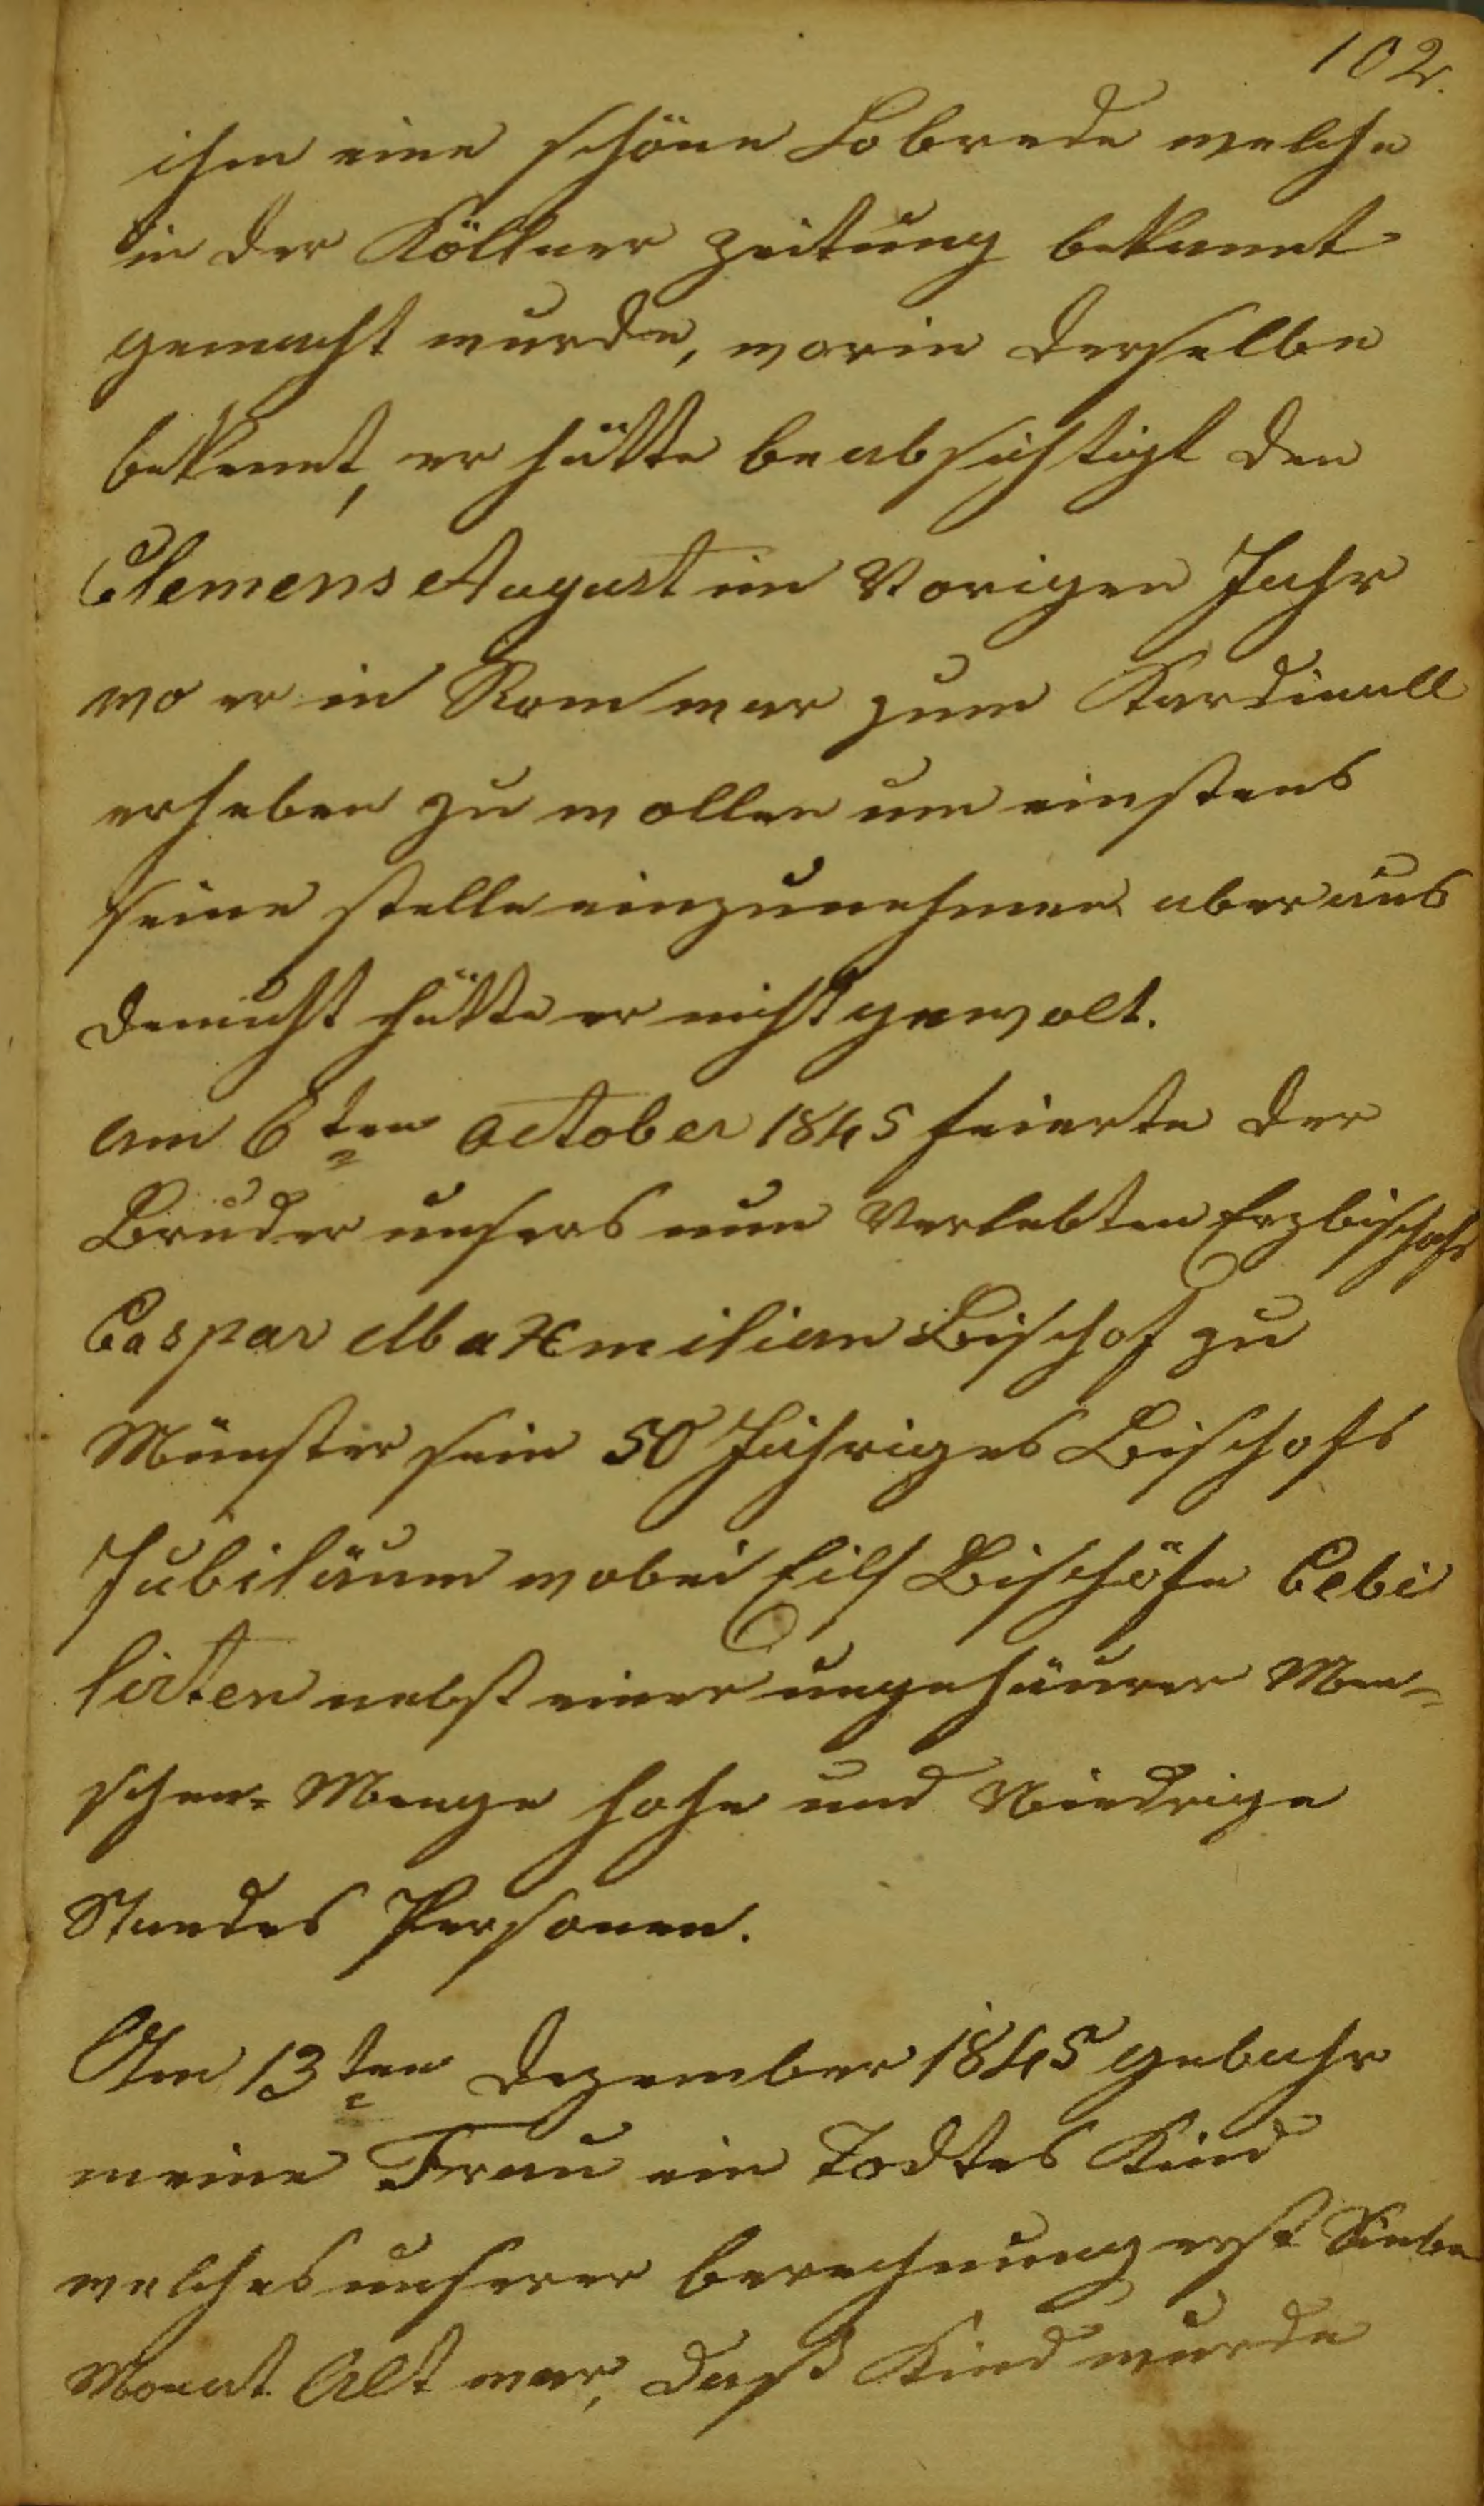 102.
ihm eine schöne Lobrede welche
in der Köllner Zeitung bekannt
gemacht wurde, worin derselbe
bekennt, er hätte beabsichtigt den
Clemens August im Vorigen Jahr
wo er in Rom war zum Kardinall
erheben zu wollen um einstens
seine stelle einzunehmen aber aus
demuht hätte er nicht gewolt.
am 6ten October 1845 feierte der
Bruder unsers nun Verlebten Erzbischofs
Caspar Maxemilian Bischof zu
Münster sein 50 Jähriges Bischofs
Jubiläum wobei Eilf Bischöfe Cebi
lirten nebst einer ungehäurer Men-
schen-Menge hohe und Niedrige
Standes Personen.
Am 13ten Dezember 1845 gebahr
meine Frau ein Todtes Kind
welches unserer berechnung erst Sieben
Monat Alt war, daß Kind wurde